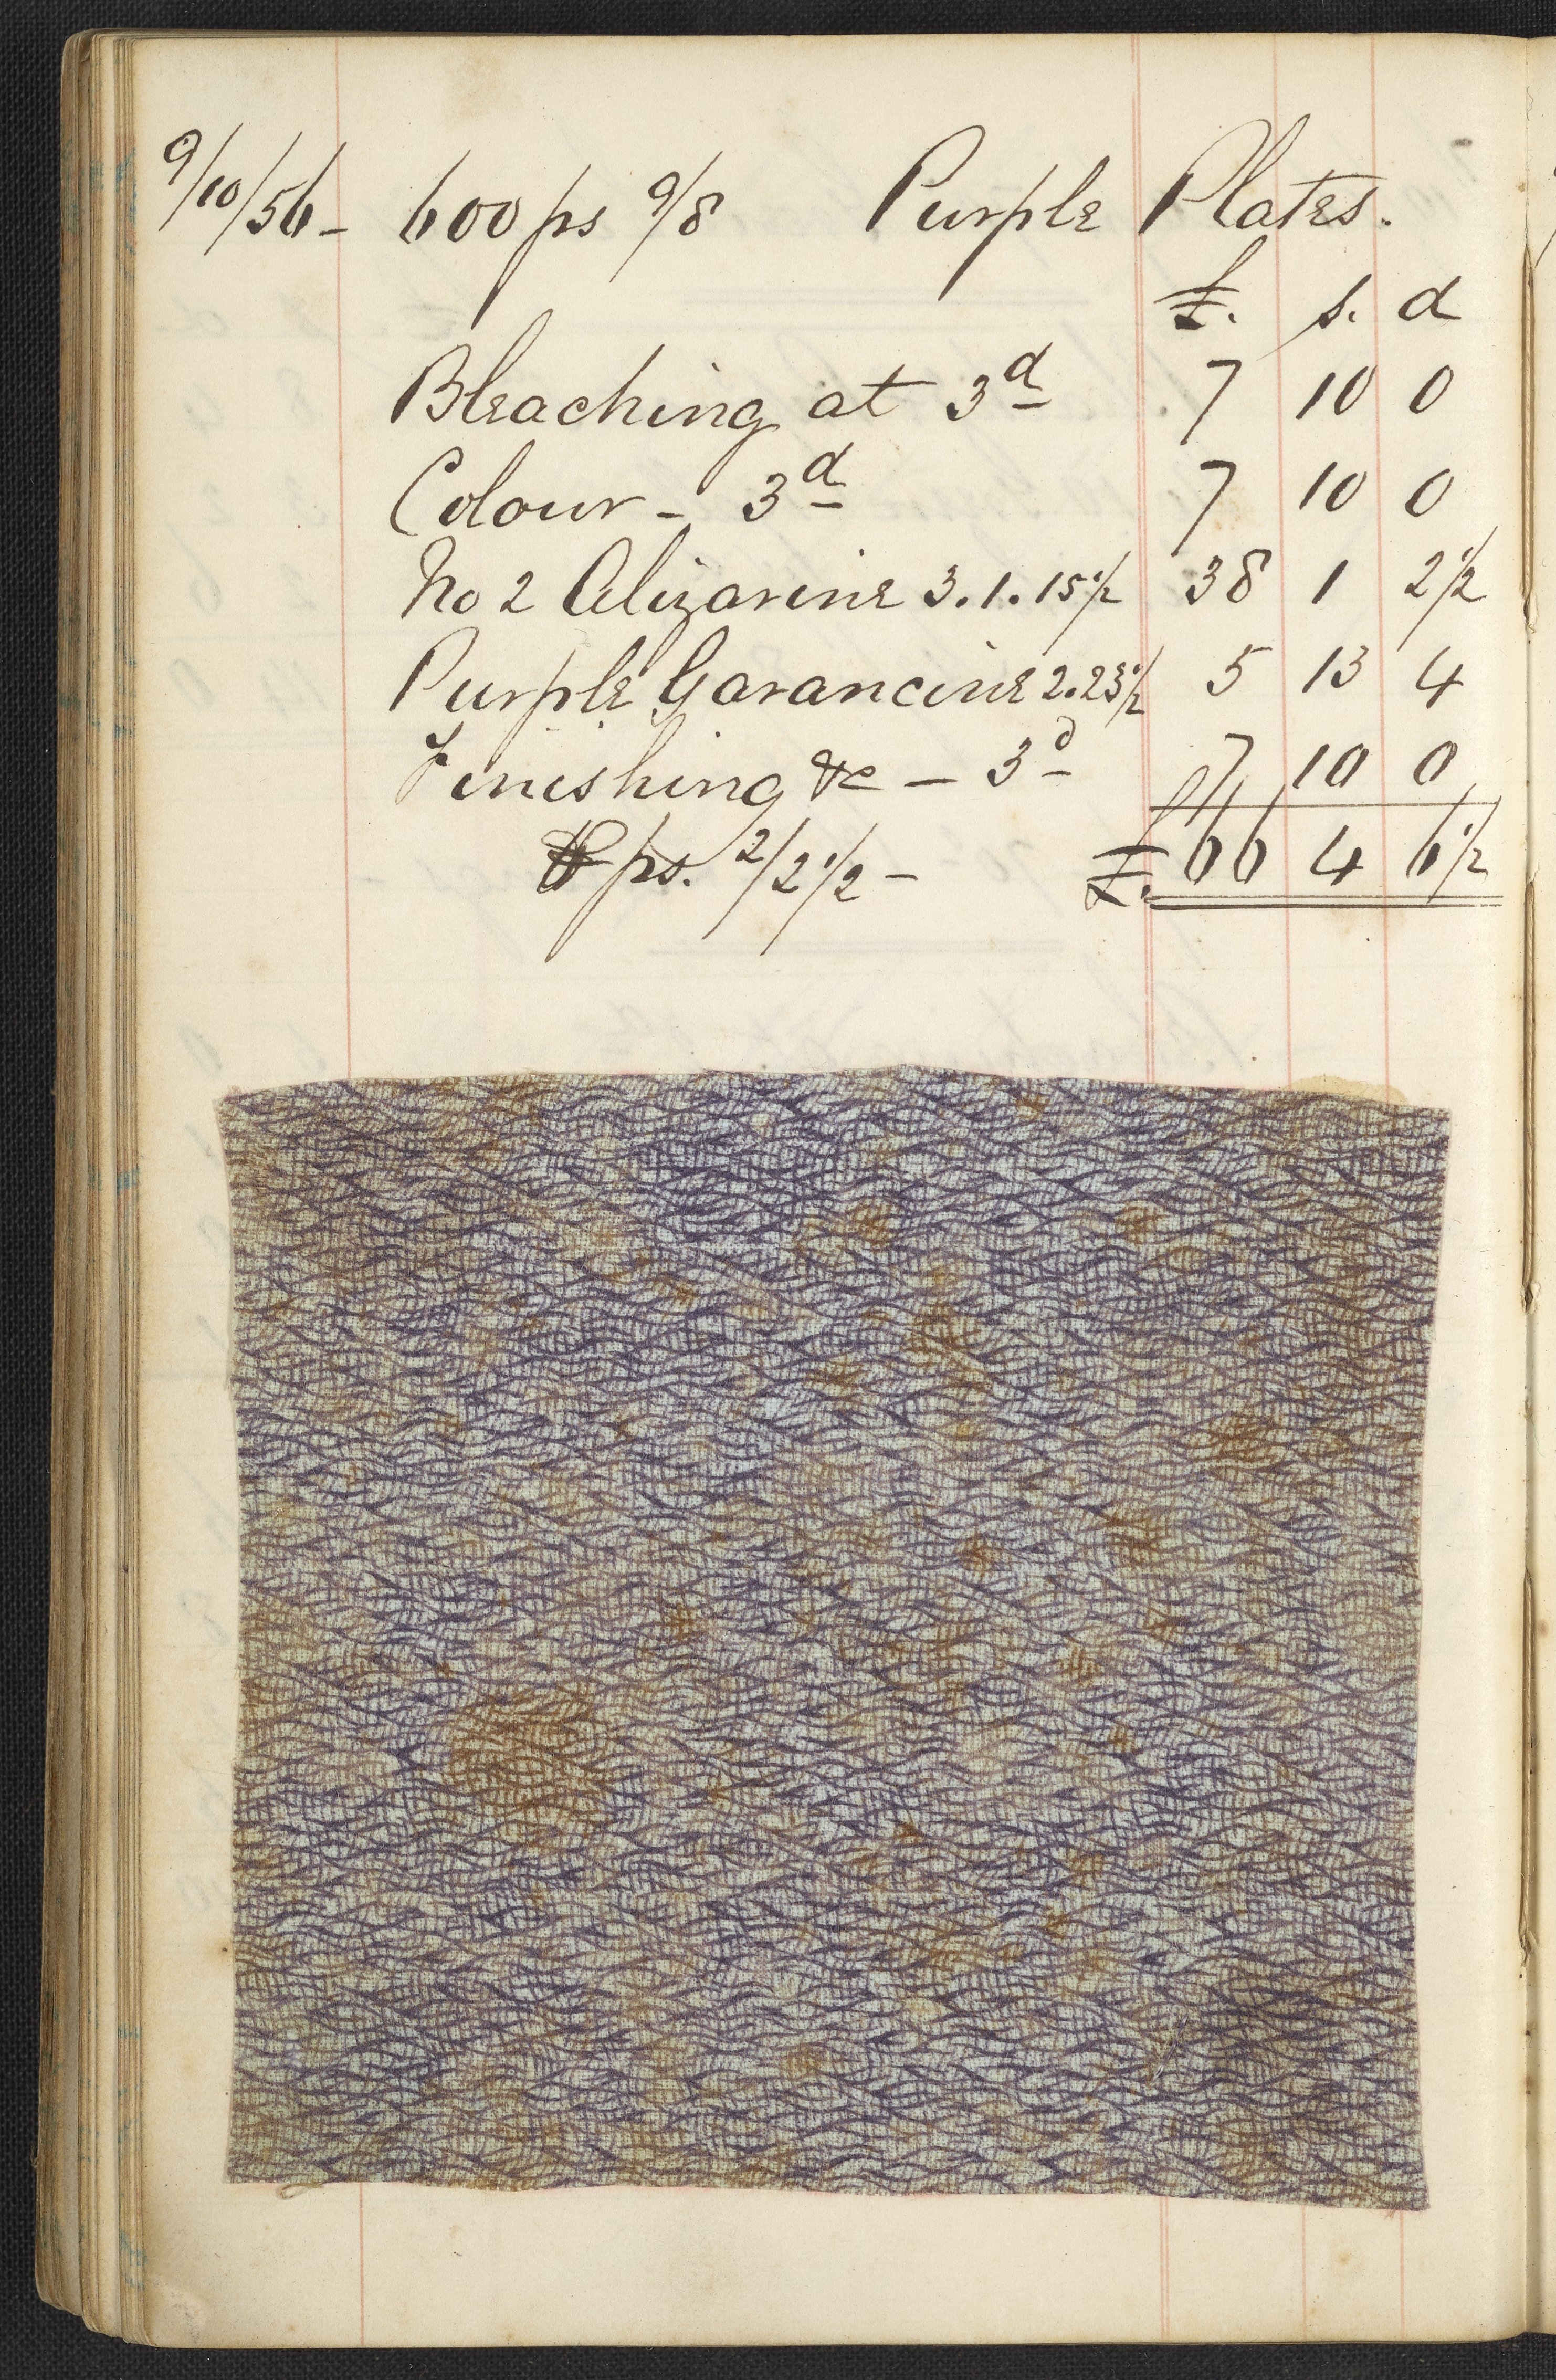 9/10/56 - 600 ps 9/8 Purple Plates.
£. s. d
Bleaching at 3d 7 10 0
Colour - 3d 7 10 0
No 2 Alizarine 3.1.15½ 38 1 2½
Purple Garancine 2.23½ 5 13 4
Finishing &c - 3d 7 10 0
⅌ ps. 2/2½ - £. 66 4 6½